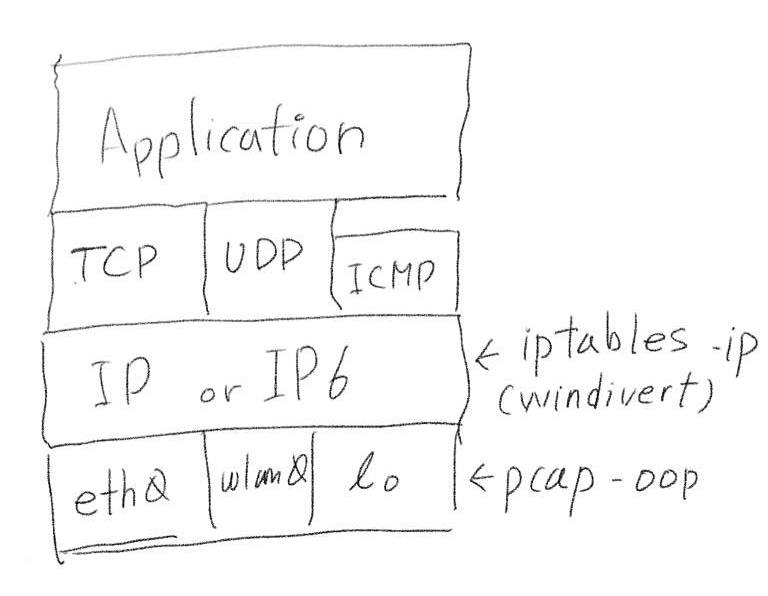 Application
TCP UDP ICMP
IP or IP6 ← iptables-ip
(windivert)
eth0 wlan0 lo ← pcap-oop